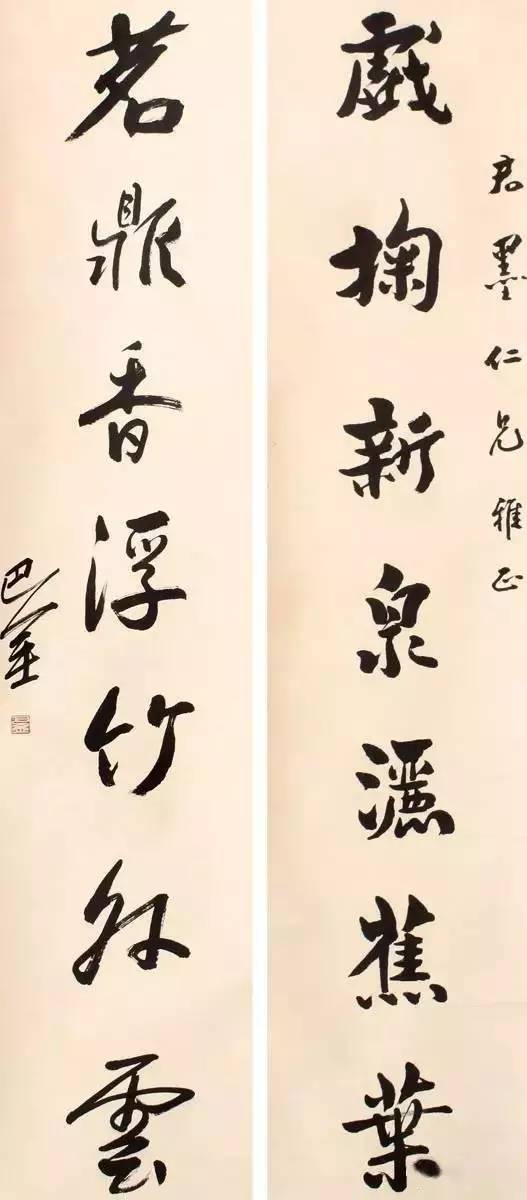 君墨仁兄雅正
戲掬新泉灑蕉葉
茗鼎香浮竹外雲
巴